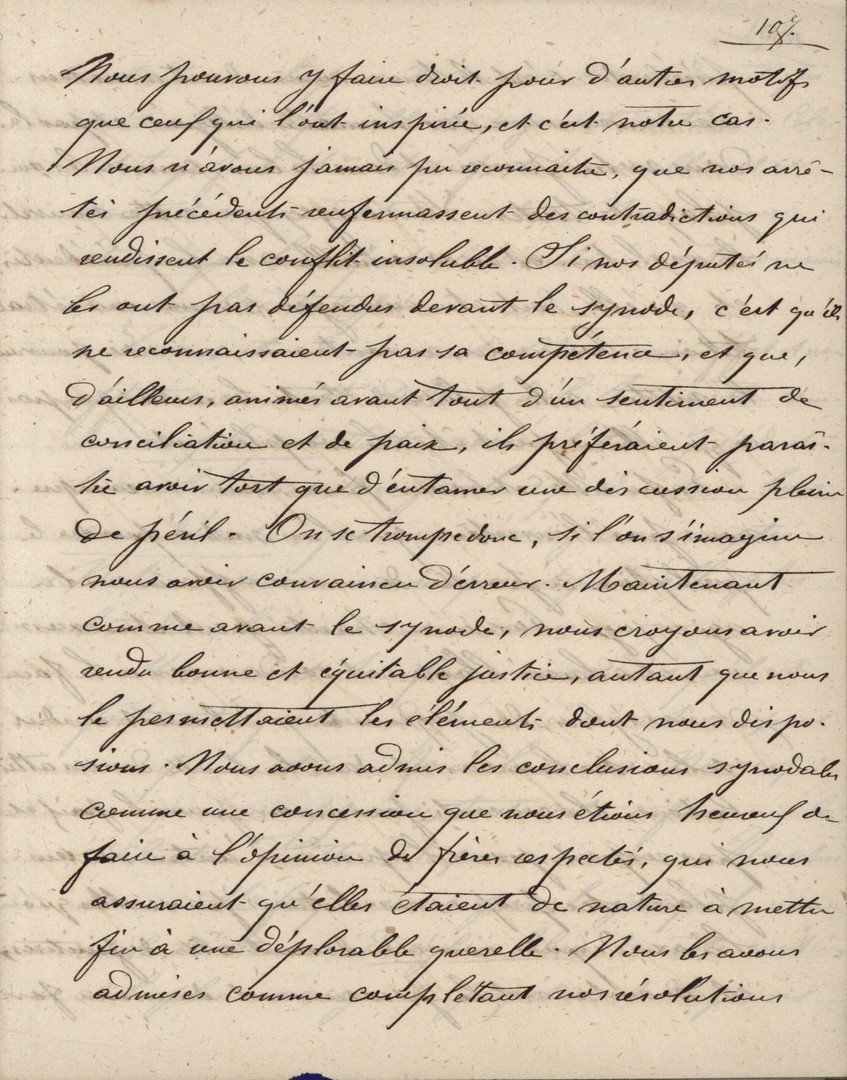 107.
Nous pouvons y faire droit pour d'autres motifs
que ceux qui l'ont inspirée, et c'est notre cas.
Nous n'avons jamais pu reconnaître, que nos arrê-
tés précédents renfermassent des contradictions qui
rendissent le conflit insoluble. Si nos députés ne
les ont pas défendus devant le synode, c'est qu'ils
ne reconnaissaient pas sa compétence, et que,
d'ailleurs, animés avant tout d'un sentiment de
conciliation et de paix, ils préféraient paraî-
tre avoir tort que d'entamer une discussion pleine
de péril. On se trompe donc, si l'on s'imagine
nous avoir convaincu d'erreur. Maintenant
comme avant le synode, nous croyons avoir
rendu bonne et équitable justice, autant que nous
le permettaient les éléments dont nous dispo-
sions. Nous avons admis les conclusions synodales
comme une concession que nous étions heureux de
faire à l'opinion de frères respectés, qui nous
assuraient qu'elles étaient de nature à mettre
fin à une déplorable querelle. Nous les avons
admises comme complétant nos résolutions